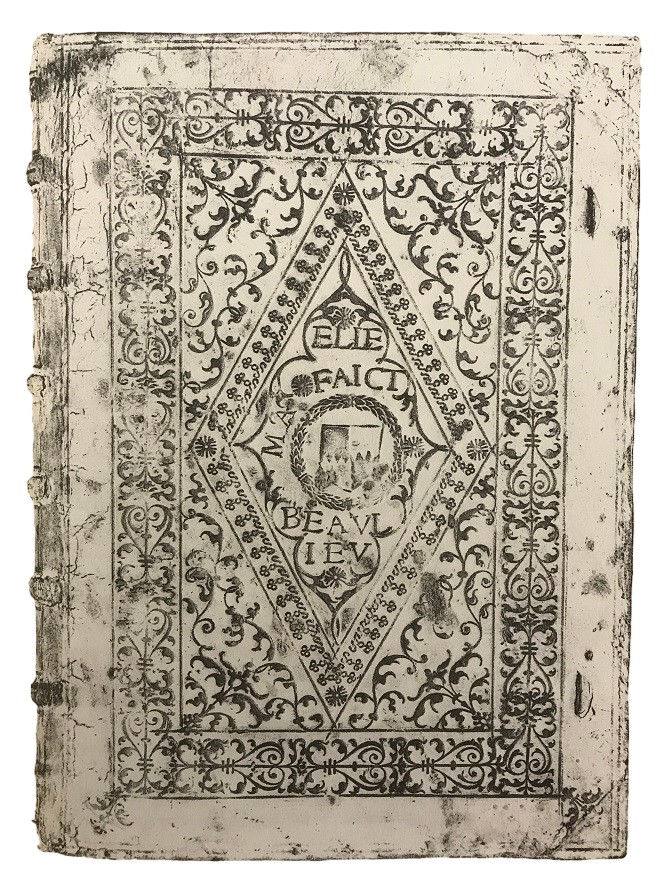 ELIE
MA FAICT
BEAVL
IEV